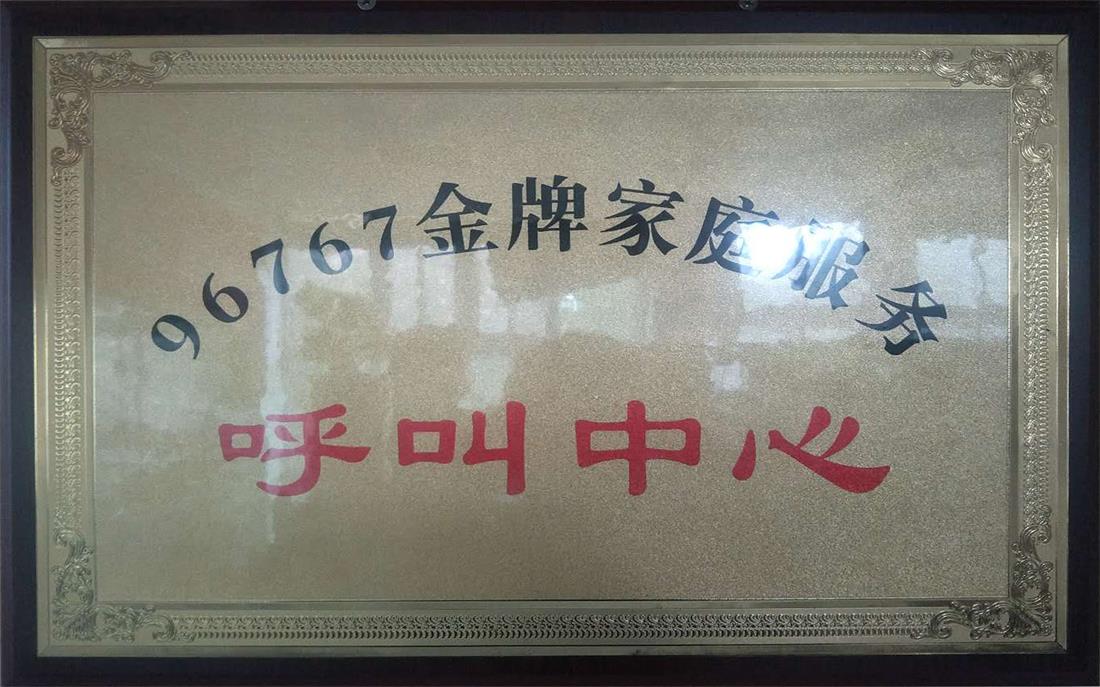 96767金牌家庭服务
呼叫中心